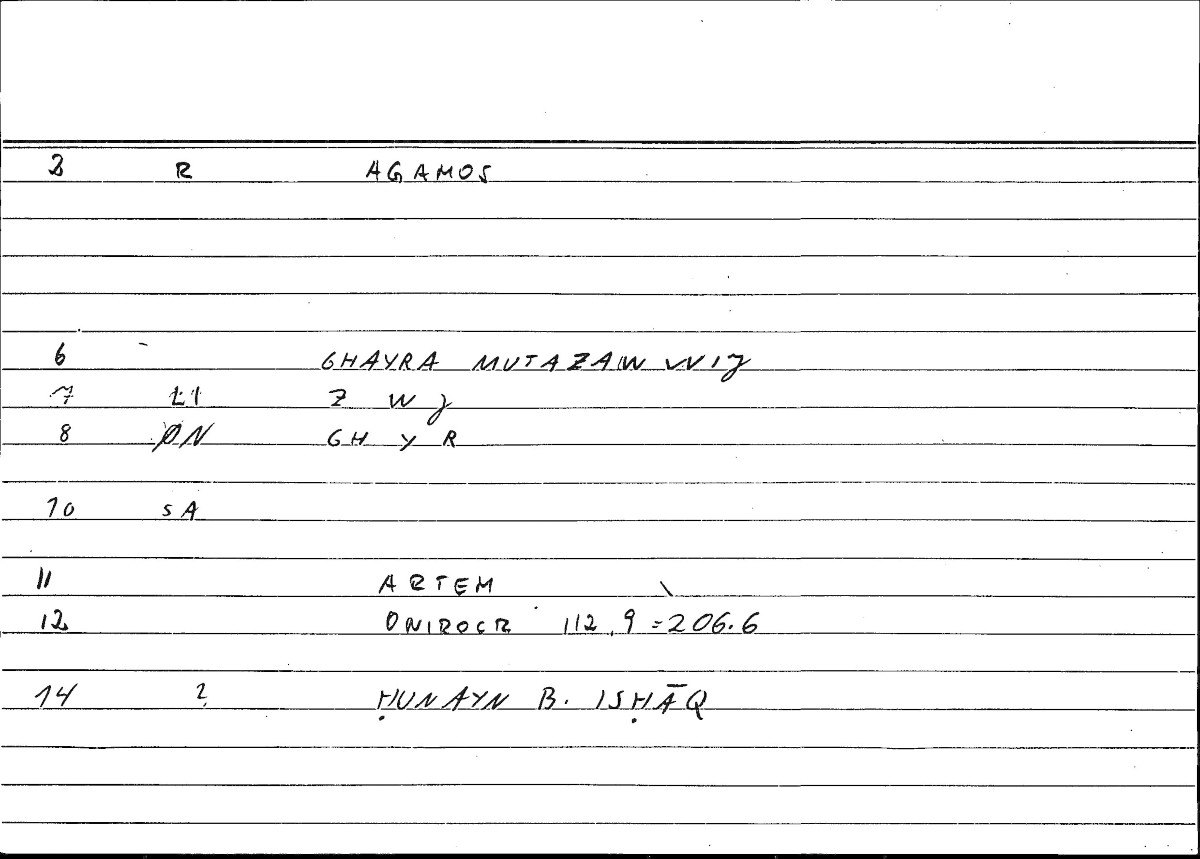 2 R AGAMOS
6 - GHAYRA MUTAZAWWIJ
7 Z W J
8 ØN GH Y R
10 SA
11 ARTEM
12 ONIROCR 112,9 = 206.6
14 2 ḤUNAYN B. ISḤĀQ